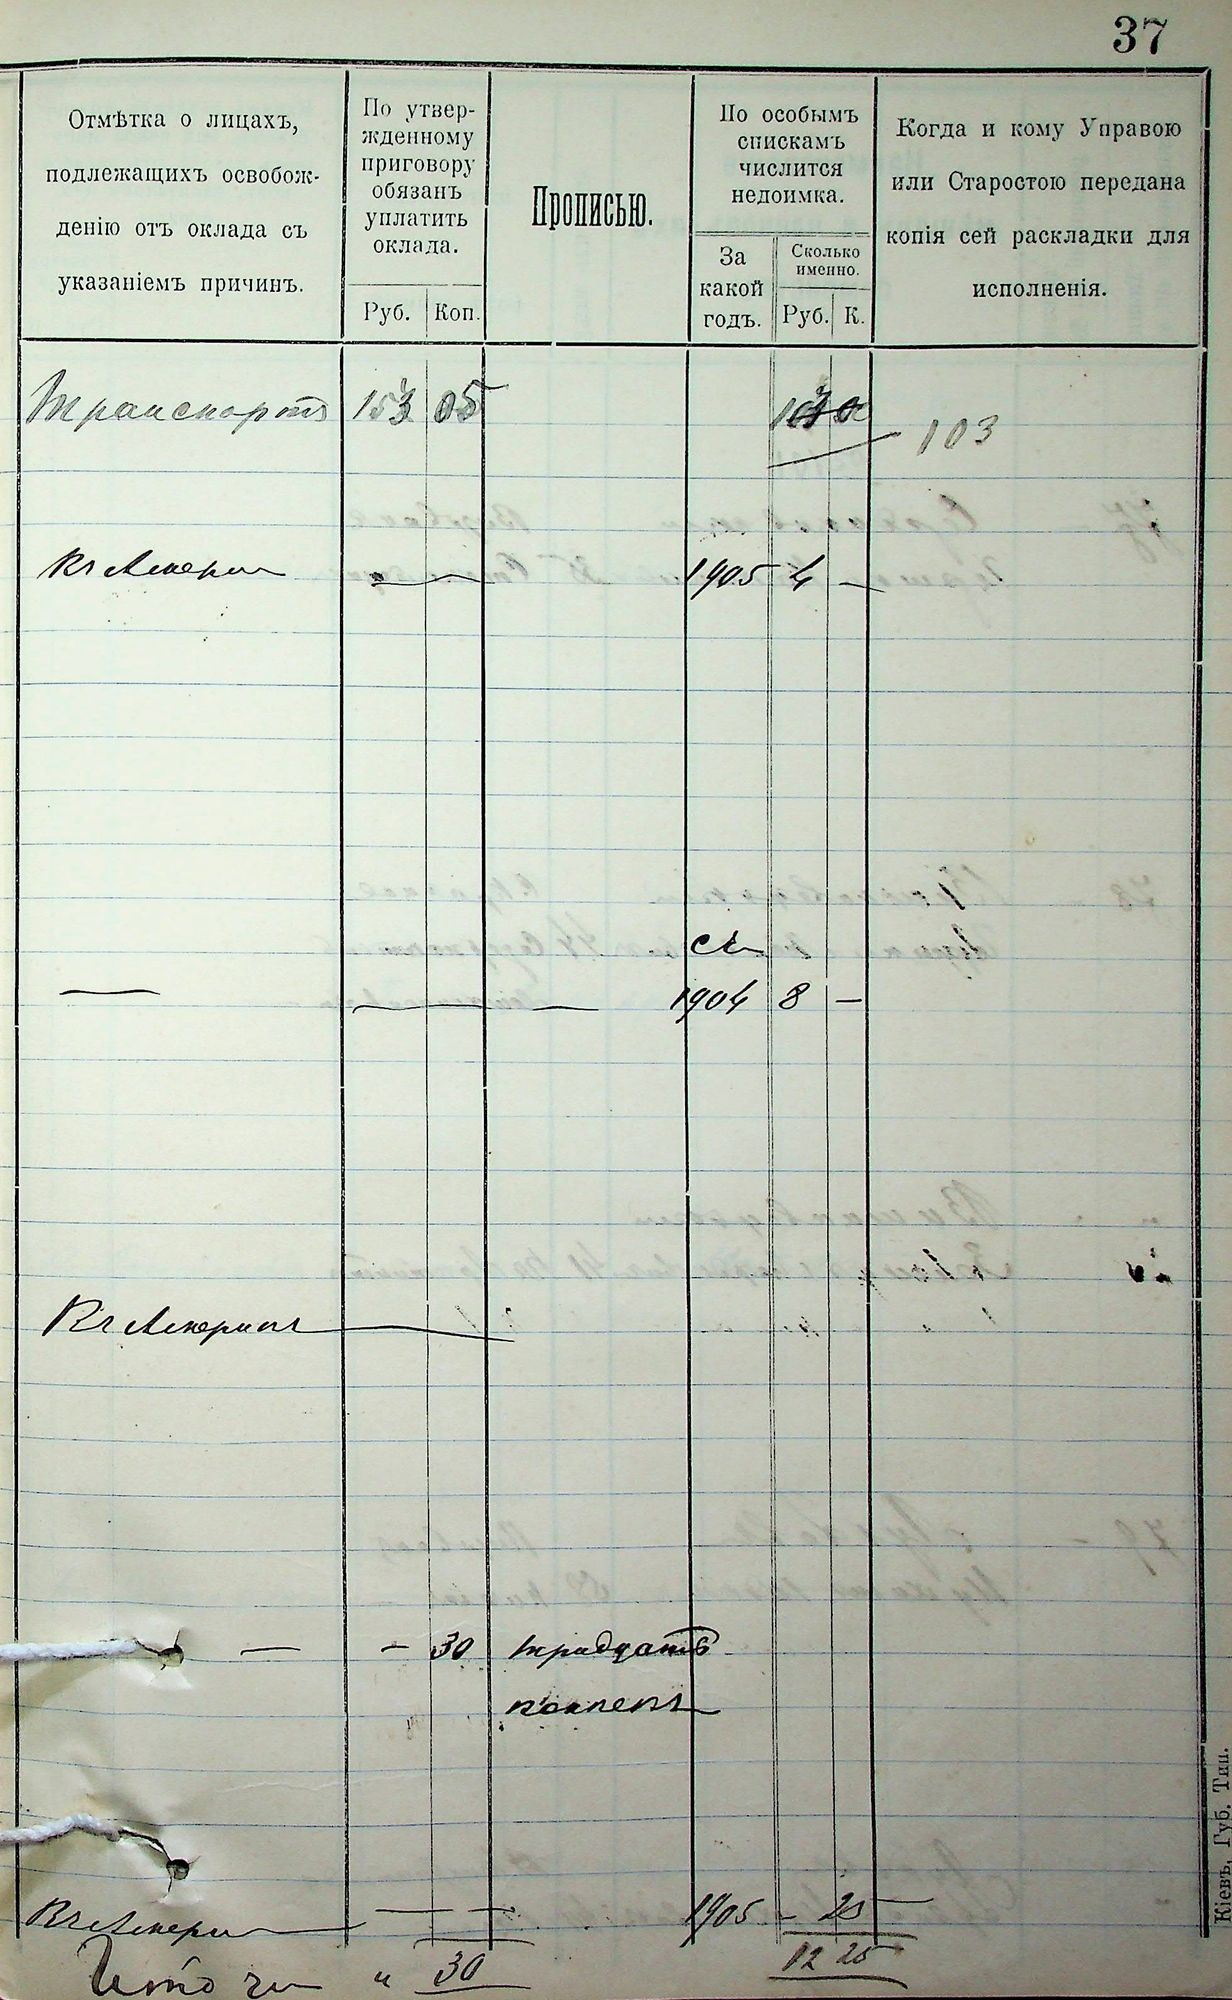 37
Отмѣтка о лицахъ,
подлежащихъ освобож-
денію отъ оклада съ
указаніемъ причинъ.
По утвер-
жденному
приговору
обязанъ
уплатить
оклада.
Руб. Коп.
Прописью.
По особымъ
спискамъ
числится
недоимка.
За
какой
годъ.
Сколько
именно.
Руб. К.
Когда и кому Управою
или Старостою передана
копія сей раскладки для
исполненія.
Транспортъ 153 05
103
Въ Америкѣ — — 1905 4 —
съ
— — — 1904 8 —
Въ Америкѣ —
— — 30 тридцать
копѣекъ
Въ Америкѣ — — 1905 – 25 —
Итого " 30 12 25
Кіевъ, Губ. Тип.